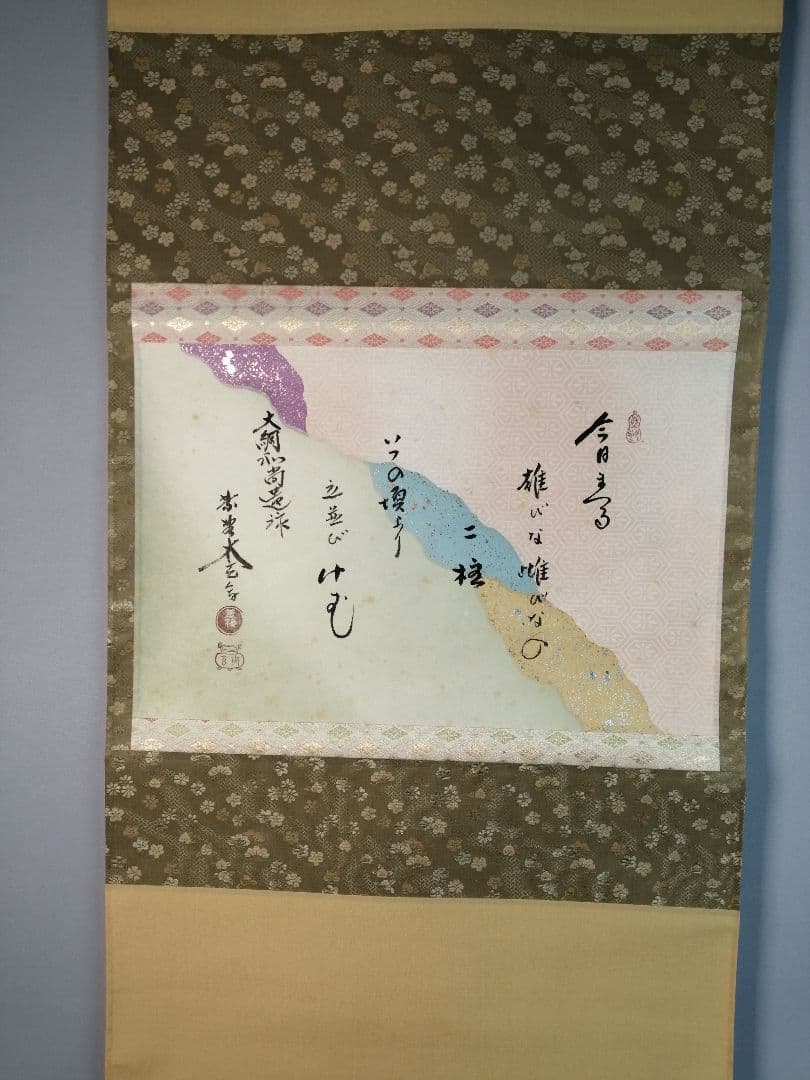 今日まつる
雄びな雌びなの
二柱
いつの頃より
立並び
けむ
大綱和尚遺詠
紫野